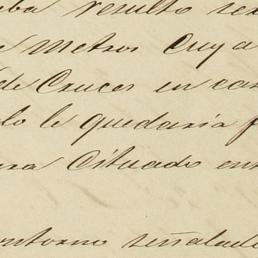 resulto
Metros Cuya
de Cruces en
lo le quedaria
Cituado en
contorno señalado